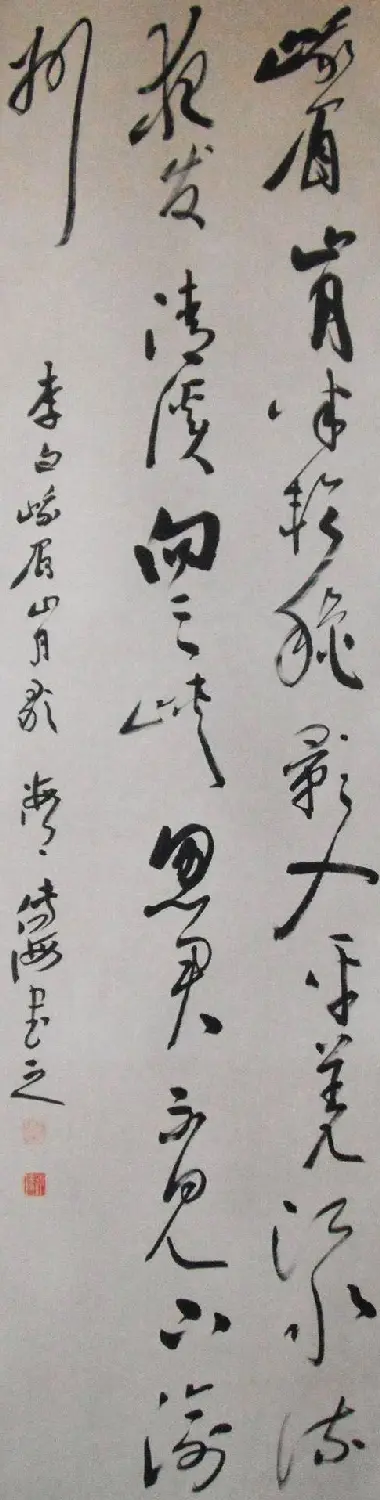 峨眉山月半轮秋影入平羌江水流
夜发清溪向三峡思君不见下渝
州
李白峨眉山月歌 海书之